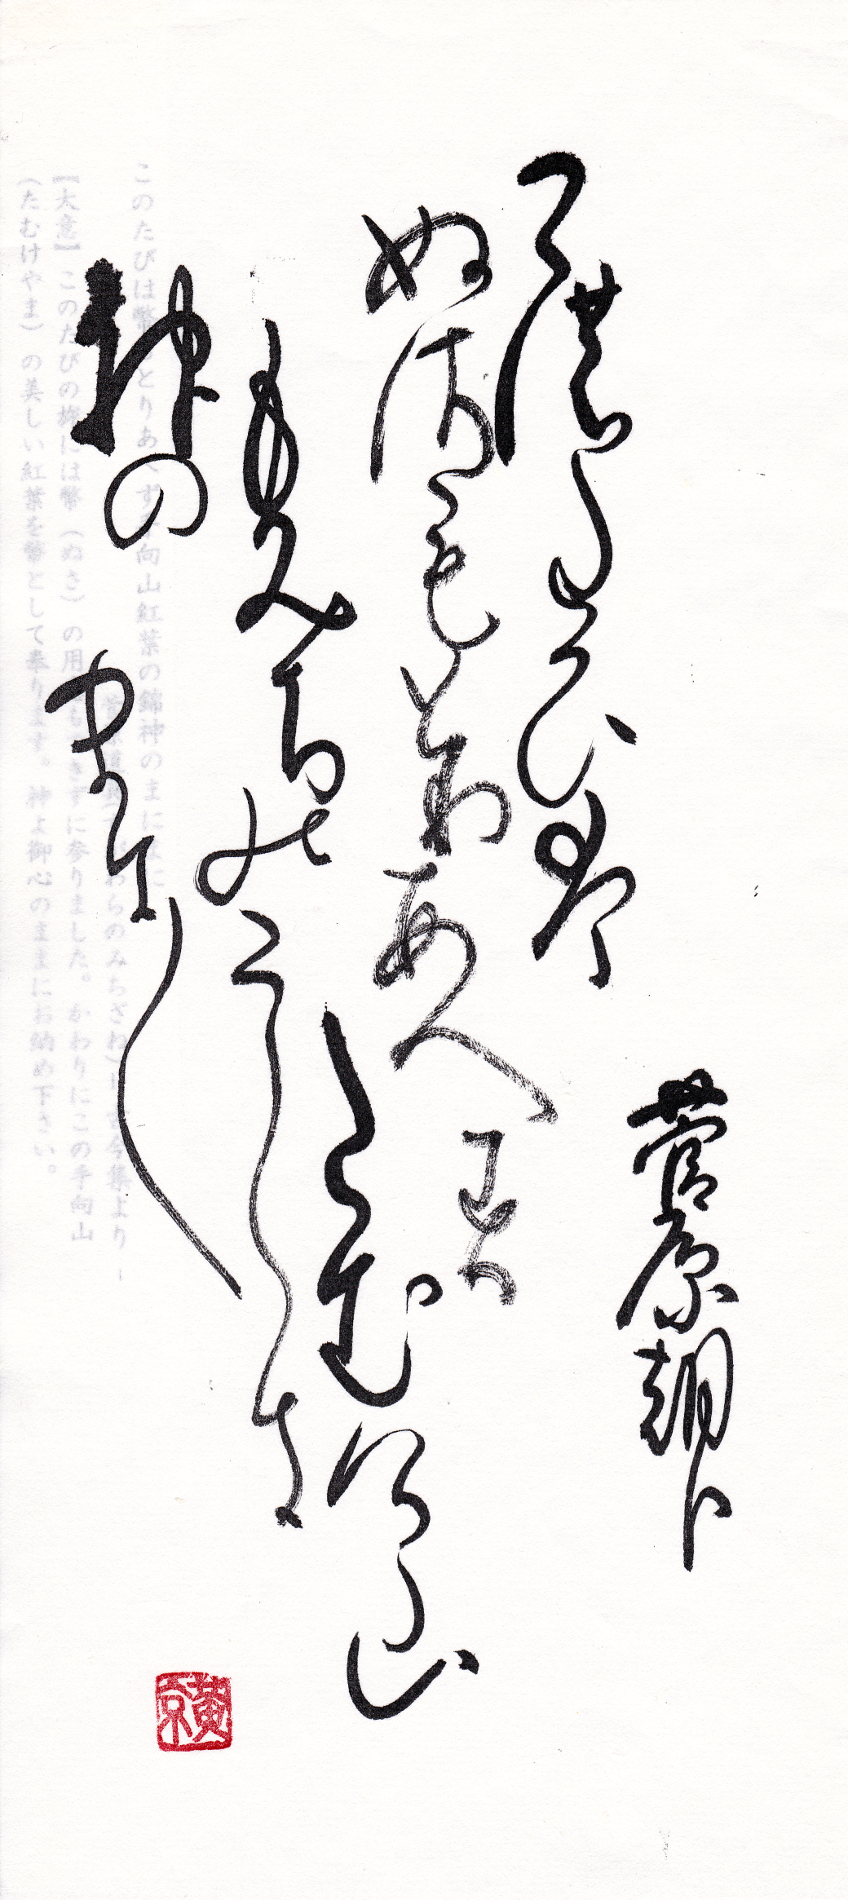 菅原朝臣
この堂日盤
ぬさ毛とり
あへす
たむけ山
もみちの
にしき
神の
まに〱
このたびは幣もとりあへず手向山紅葉の錦神のまにまに
菅原道真(すがわらのみちざね) 古今集より
【大意】このたびの旅には幣(ぬさ)の用意もできずに参りました。かわりにこの手向山
(たむけやま)の美しい紅葉を幣として奉ります。神よ御心のままにお納め下さい。